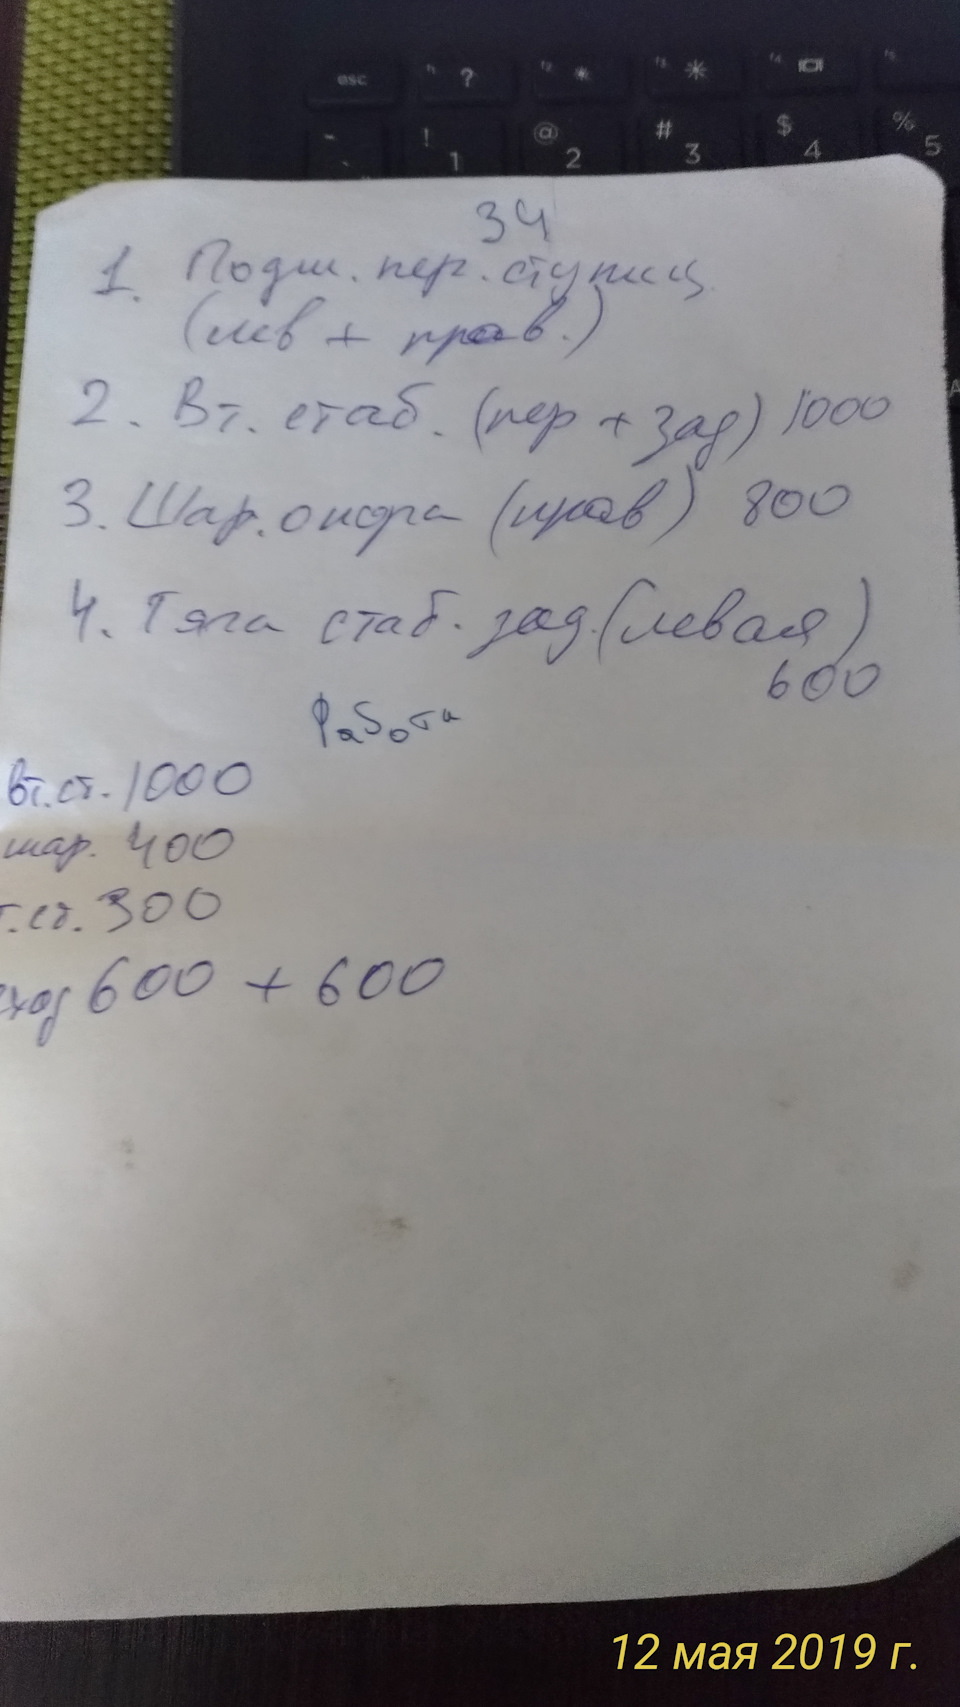 esc f1 ? f2 f3 f4 f5
~ ! 1 @ 2 # 3 $ 4 % 5
ЗЧ
1. Подш. пер. ступиц
(лев + прав.)
2. Вт. стаб. (пер + зад) 1000
3. Шар. опора (прав) 800
4. Тяга стаб. зад. (левая)
600
Работа
вт.ст. 1000
шар. 400
т.ст. 300
сход 600 + 600
12 мая 2019 г.